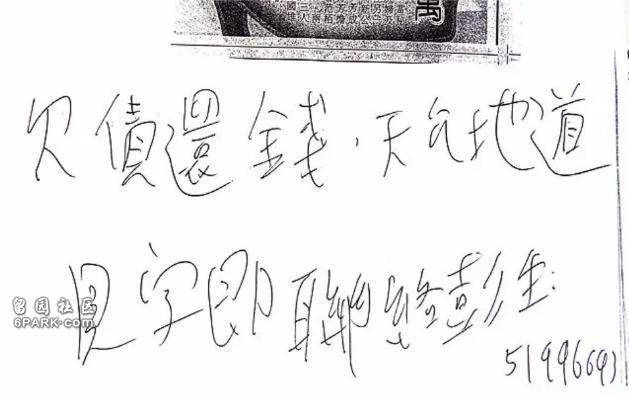 萬
欠債還錢，天公地道
見字即聯絡彭生:
51996693
留园社区
6PARK.com